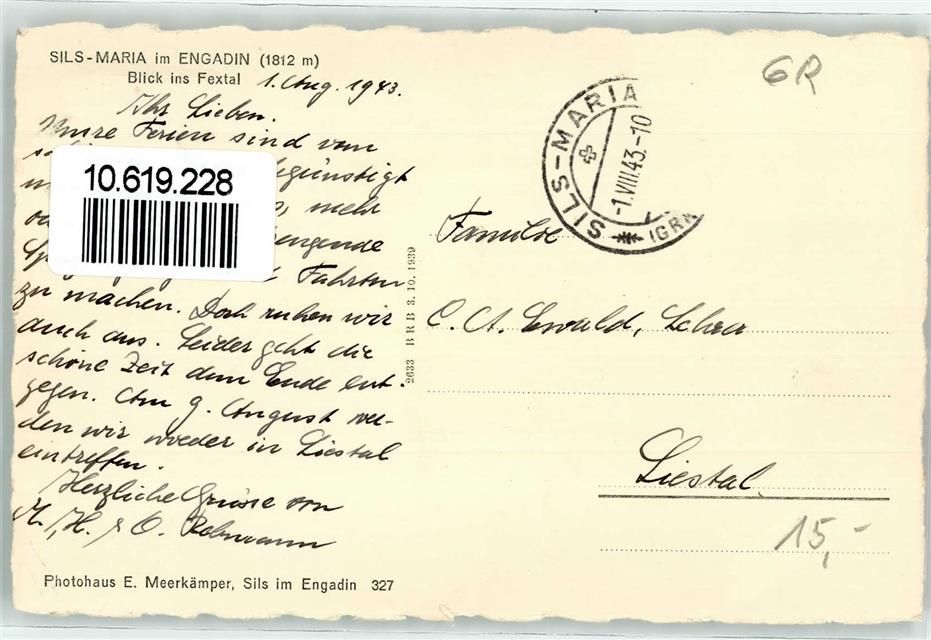 SILS-MARIA im ENGADIN (1812 m)
Blick ins Fextal
1. Aug. 1943.
Ihr Lieben.
Unsre Ferien sind vom
günstigt
10.619.228
mehr
ngende
Fahrten
zu machen. Doch ruhen wir
auch aus. Leider geht die
schöne Zeit dem Ende ent-
gegen. Am 9. August wer-
den wir wieder in Liestal
eintreffen.
Herzliche Grüsse von
M., H. & O.
Photohaus E. Meerkämper, Sils im Engadin 327
2633 BRB 3. 10. 1939
GR
SILS-MARIA
-1.VIII.43.-10
Familie
C. A. Ewald, Lehrer
Liestal
15,-